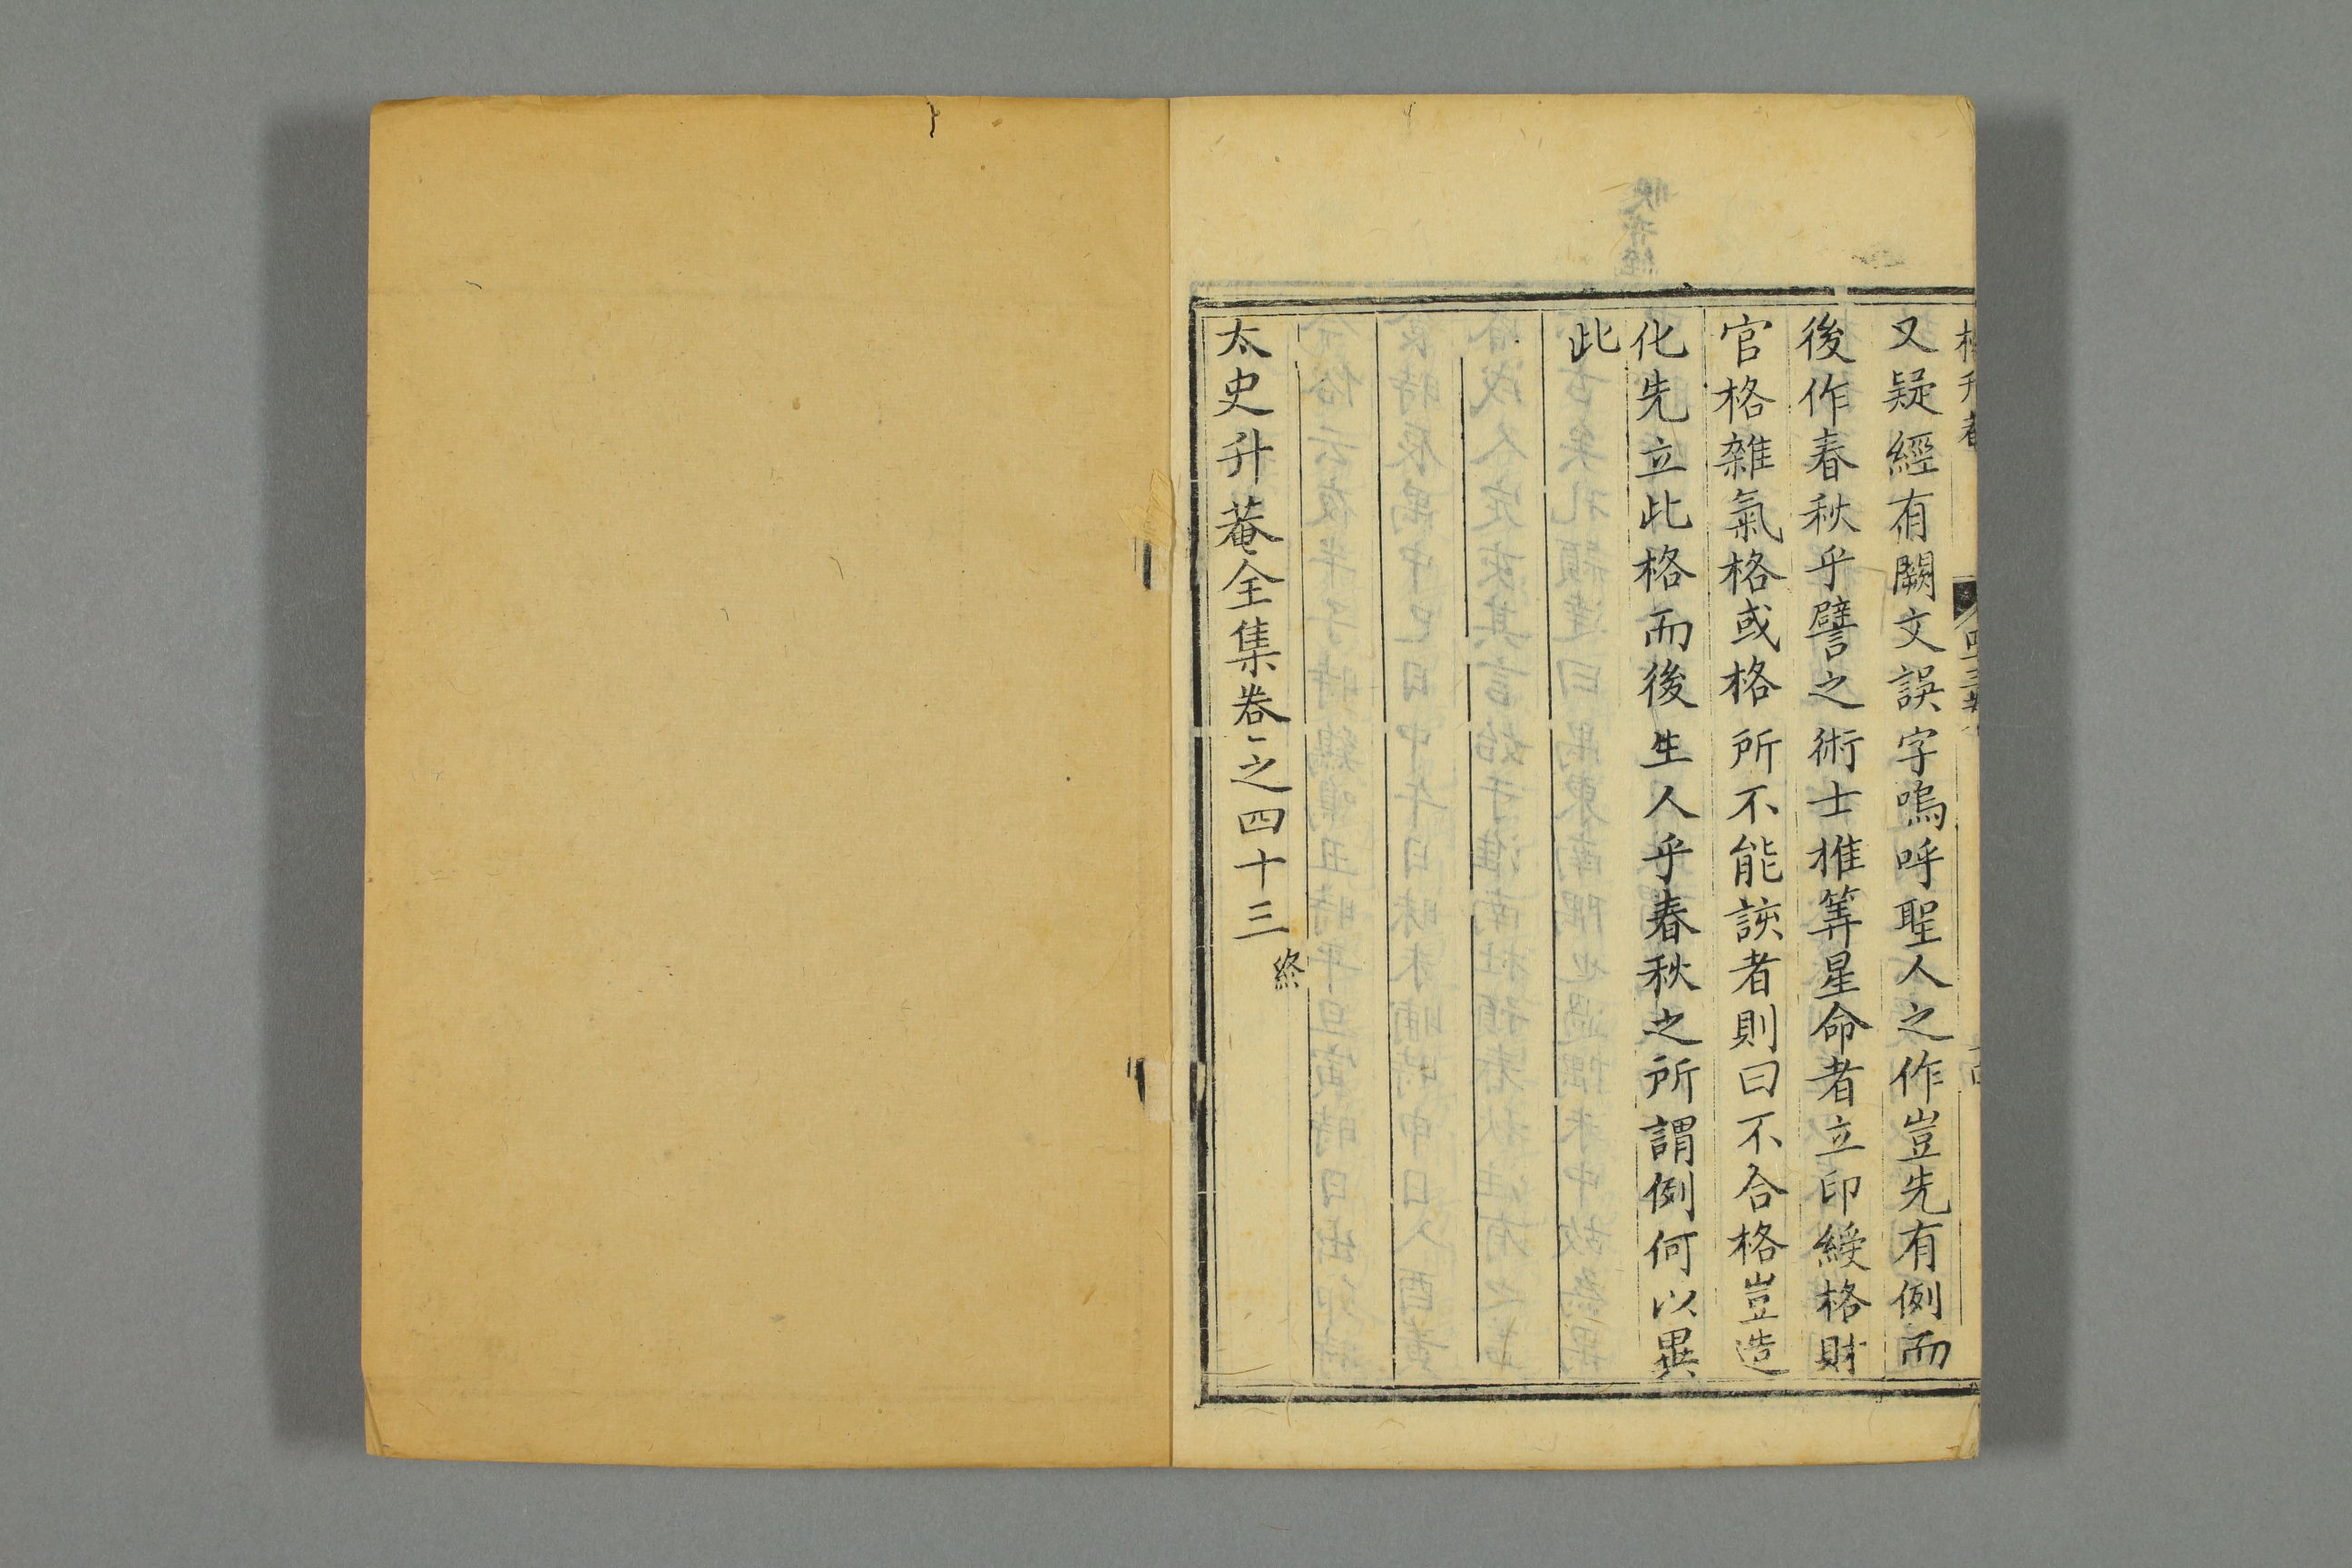 又疑經有闕文誤字嗚呼聖人之作豈先有例而
後作春秋乎譬之術士推筭星命者立印綬格財
官格雜氣格或格所不能該者則曰不合格豈造
化先立此格而後生人乎春秋之所謂例何以異
此
太史升菴全集卷之四十三
終